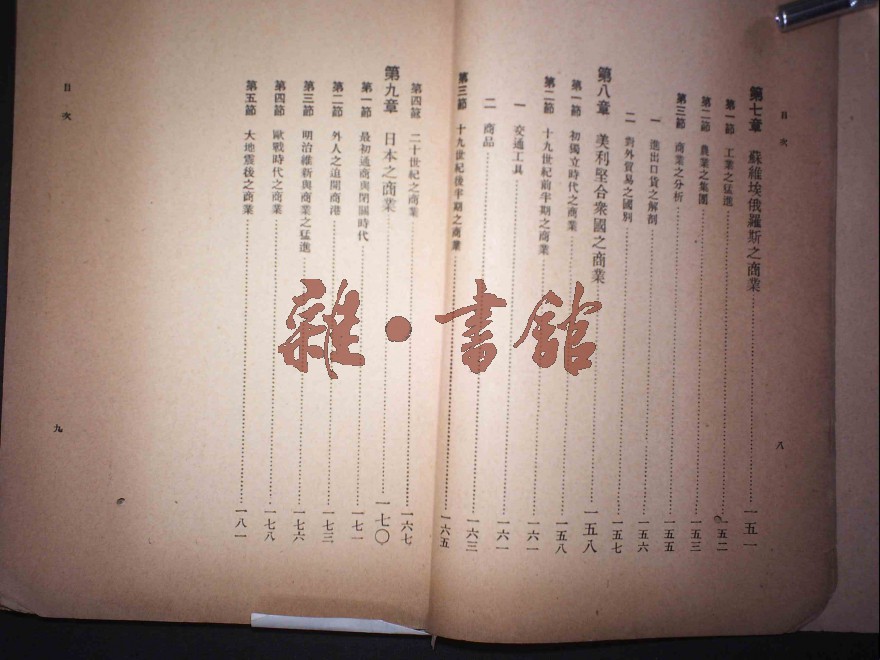 目次
第七章 蘇維埃俄羅斯之商業 一五一
第一節 工業之猛進 一五二
第二節 農業之集團 一五三
第三節 商業之分析 一五五
一 進出口貨之解剖 一五六
二 對外貿易之國別 一五七
第八章 美利堅合衆國之商業 一五八
第一節 初獨立時代之商業 一五八
第二節 十九世紀前半期之商業 一六一
一 交通工具 一六一
二 商品 一六三
八
第三節 十九世紀後半期之商業 一六五
第四節 二十世紀之商業 一六七
第九章 日本之商業 一七〇
第一節 最初通商與閉關時代 一七一
第二節 外人之迫開商港 一七三
第三節 明治維新與商業之猛進 一七六
第四節 歐戰時代之商業 一七八
第五節 大地震後之商業 一八一
目次
九
雜·書館